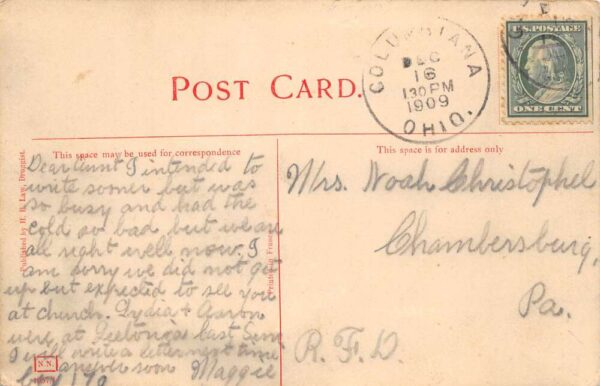 POST CARD.
COLUMBIANA
DEC
16
130 PM
1909
OHIO.
U.S. POSTAGE
ONE CENT
This space may be used for correspondence
This space is for address only
Dear Aunt I intended to
write sooner but was
so busy and had the
cold so bad but we are
all right well now. I
am sorry we did not get
up but expected to see you
at church. Lydia & Aaron
were at Leetonia last Sun.
I will write a letter next time
answer soon Maggie
Mrs. Noah Christophel
Chambersburg,
Pa.
R.F.D.
Published by H. B. Law, Druggist.
Printed in France
N.N.